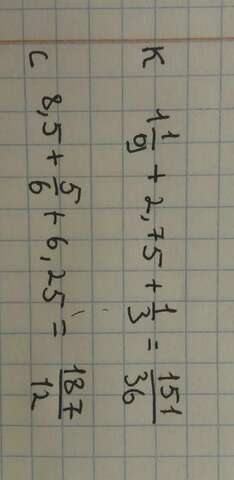 К 1 1/9 + 2,75 + 1/3 = 151/36
С 8,5 + 5/6 + 6,25 = 187/12